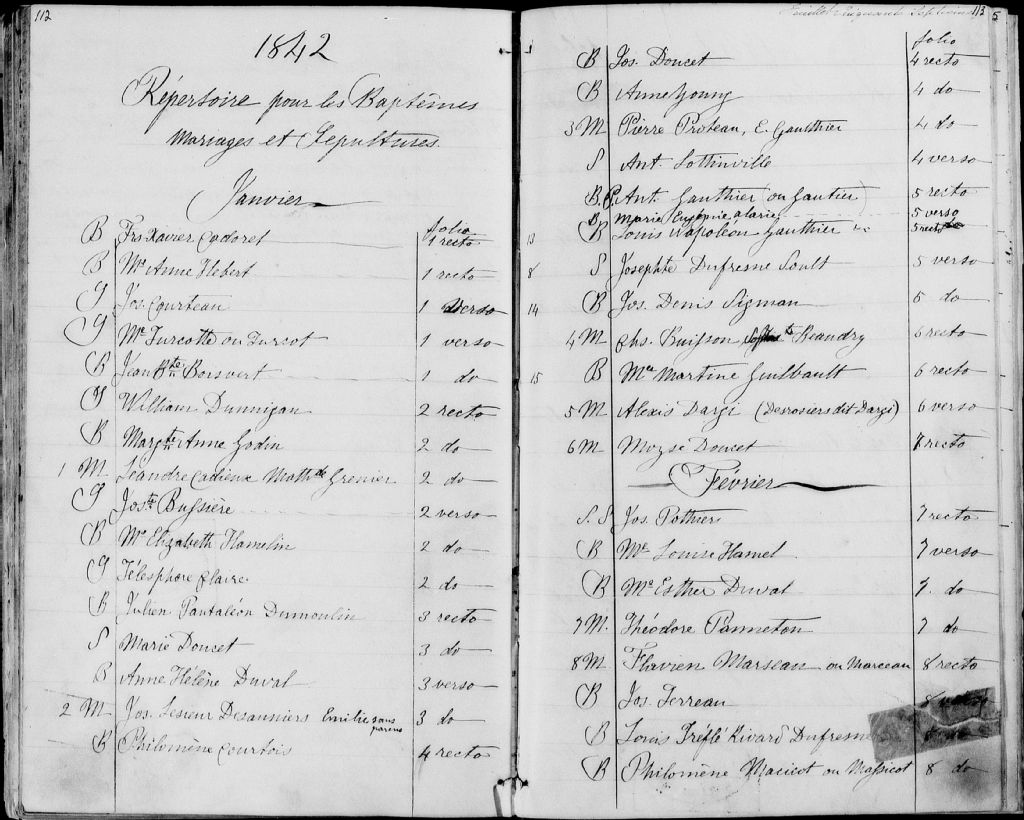 112
1842
Répertoire pour les Baptêmes
Mariages et Sepultures
Janvier
folio
B Frs Xavier Cadoret 1 recto
B Me Anne Hebert 1 recto
S Jos. Courteau 1 verso
S Me Turcotte ou Tursot 1 verso
B Jean Bte Boisvert 1 do
S William Dunnigan 2 recto
B Margte Anne Godin 2 do
1 M Leandre Cadieux Mathde Grenier 2 do
S Joste Bussière 2 verso
B Me Elizabeth Hamelin 2 do
S Télesphore Claire 2 do
B Julien Pantaléon Dumoulin 3 recto
S Marie Doucet 3 do
B Anne Hélène Duval 3 verso
2 M Jos. Lesieur Desaunniers Emilie sans parens 3 do
B Philomène Courtois 4 recto
113
5
folio
B Jos. Doucet 4 recto
B Anne Young 4 do
3 M Pierre Proteau, E. Gaulthier 4 do
S Ant. Lottinville 4 verso
B. Ant. Gauthier (ou Gautier) 5 recto
B. Marie Eugénie alarie 5 verso
13 B Louis Napoléon Gauthier 5 recto
8 S Josephte Dufresne Soult 5 verso
14 B Jos. Denis Sigman 5 do
4 M Chs. Buisson Beaudry 6 recto
15 B Me Martine Guilbault 6 recto
5 M Alexis Dargi (Desrosiers dit Dargi) 6 verso
6 M Moyse Doucet 7 recto
Février
S. S Jos. Pothier 7 recto
B Me Louise Hamel 7 verso
B Me Esther Duval 7. do
7 M. Théodore Panneton 7 do
8 M Flavien Marseau ou Marceau 8 recto
B Jos. Terreau 8
B Louis Tréflé Rivard Dufresne 8
B Philomène Macicot ou Massicot 8 do